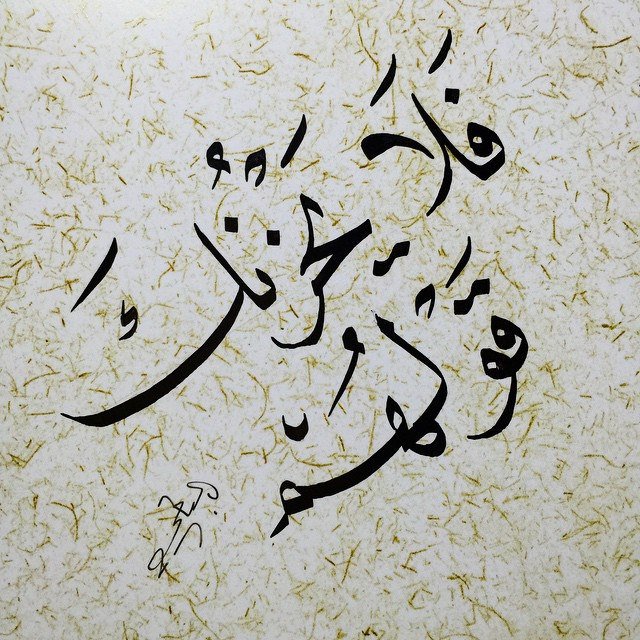 فَلَا يَحْزُنْكَ
قَوْلُهُمْ